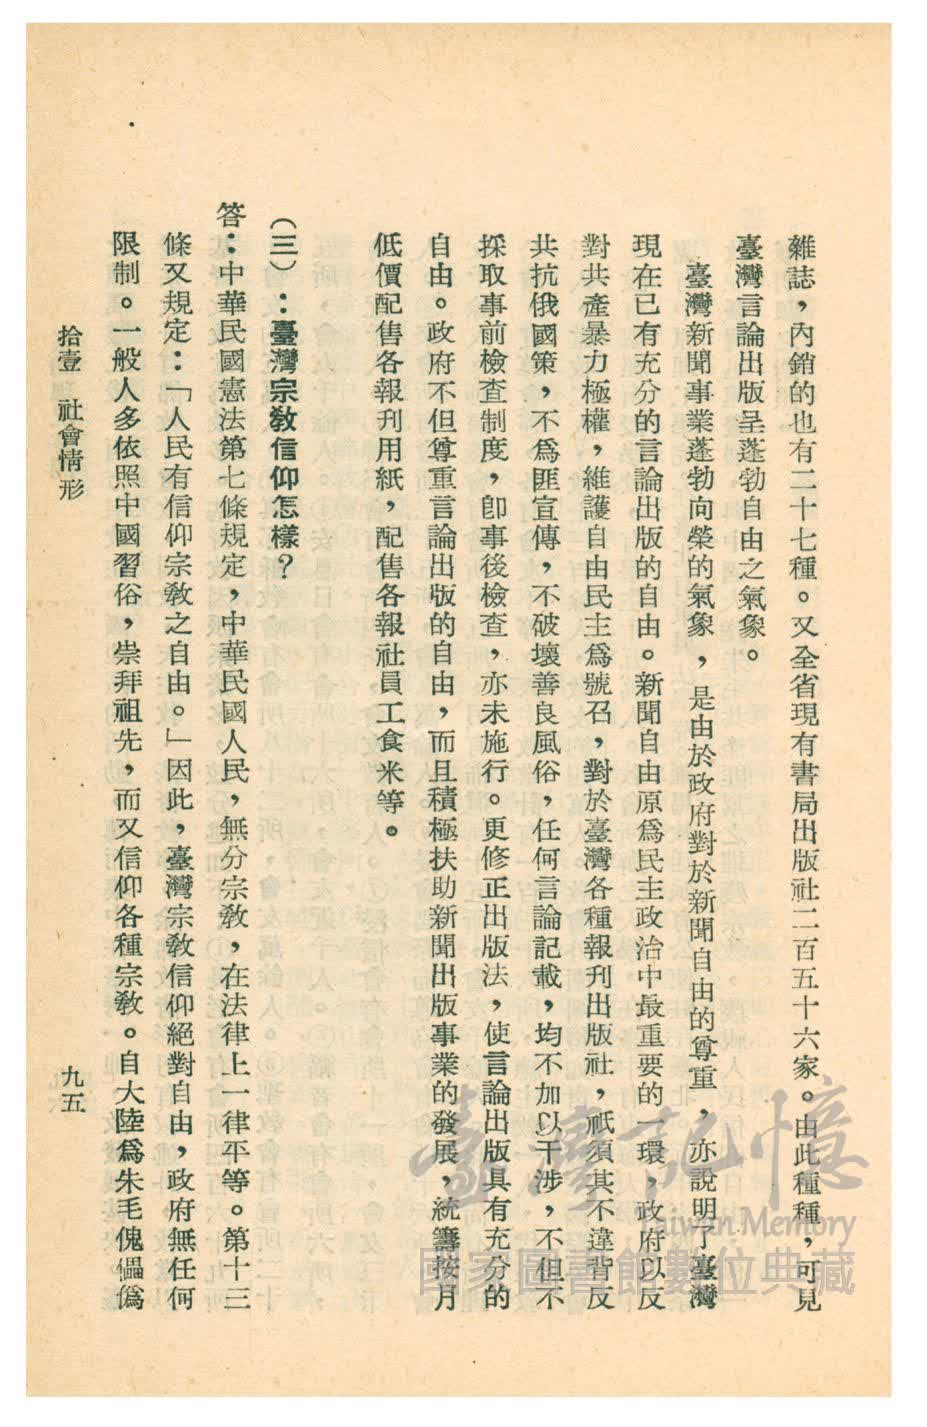 雜誌，內銷的也有二十七種。又全省現有書局出版社二百五十六家。由此種種，可見
臺灣言論出版呈蓬勃自由之氣象。
臺灣新聞事業蓬勃向榮的氣象，是由於政府對於新聞自由的尊重，亦說明了臺灣
現在已有充分的言論出版的自由。新聞自由原爲民主政治中最重要的一環，政府以反
對共產暴力極權，維護自由民主爲號召，對於臺灣各種報刊出版社，祇須其不違背反
共抗俄國策，不爲匪宣傳，不破壞善良風俗，任何言論記載，均不加以干涉，不但不
採取事前檢查制度，卽事後檢查，亦未施行。更修正出版法，使言論出版具有充分的
自由。政府不但尊重言論出版的自由，而且積極扶助新聞出版事業的發展，統籌按月
低價配售各報刊用紙，配售各報社員工食米等。
（三）：臺灣宗教信仰怎樣？
答：中華民國憲法第七條規定，中華民國人民，無分宗教，在法律上一律平等。第十三
條又規定：「人民有信仰宗教之自由。」因此，臺灣宗教信仰絕對自由，政府無任何
限制。一般人多依照中國習俗，崇拜祖先，而又信仰各種宗教。自大陸爲朱毛傀儡僞
拾壹 社會情形
九五
臺灣記憶
Taiwan Memory
國家圖書館數位典藏